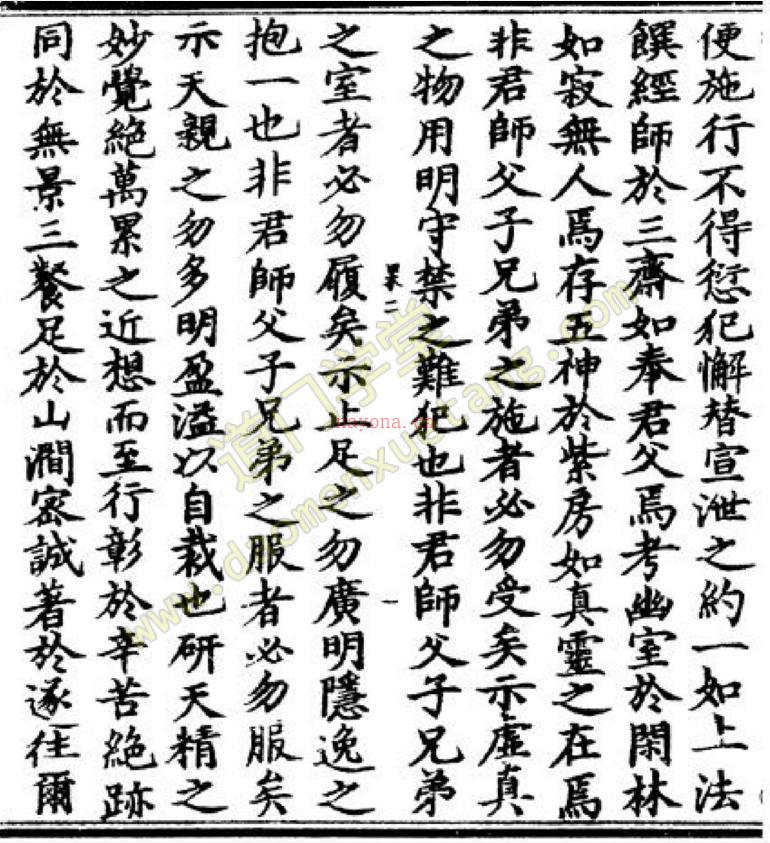 便施行不得愆犯懈替宣泄之約一如上法
饌經師於三齋如奉君父焉考幽室於閑林
如寂無人焉存五神於紫房如真靈之在焉
非君師父子兄弟之施者必勿受矣示虛真
之物用明守禁之難犯也非君師父子兄弟
之室者必勿履矣示止足之勿廣明隱逸之
抱一也非君師父子兄弟之服者必勿服矣
示天親之勿多明盈溢以自裁也研天精之
妙覺絕萬累之近想而至行彰於辛苦絕跡
同於無景三餐足於山澗密誠著於遂往爾
道门学堂
www.daomenxuetang.com
nayona.cn